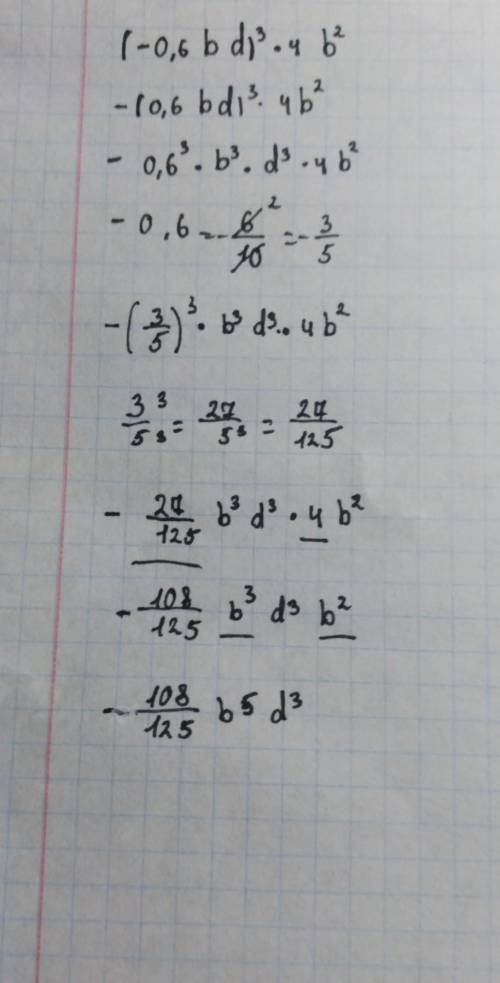 (-0,6 b d)³ · 4 b²
-(0,6 bd)³ · 4b²
- 0,6³ · b³ · d³ · 4 b²
- 0,6 = -6/10 ² = -3/5
-(3/5)³ · b³ d³ · · 4b²
3³/5³ = 27/5³ = 27/125
- 27/125 b³ d³ · 4 b²
- 108/125 b³ d³ b²
- 108/125 b5 d³